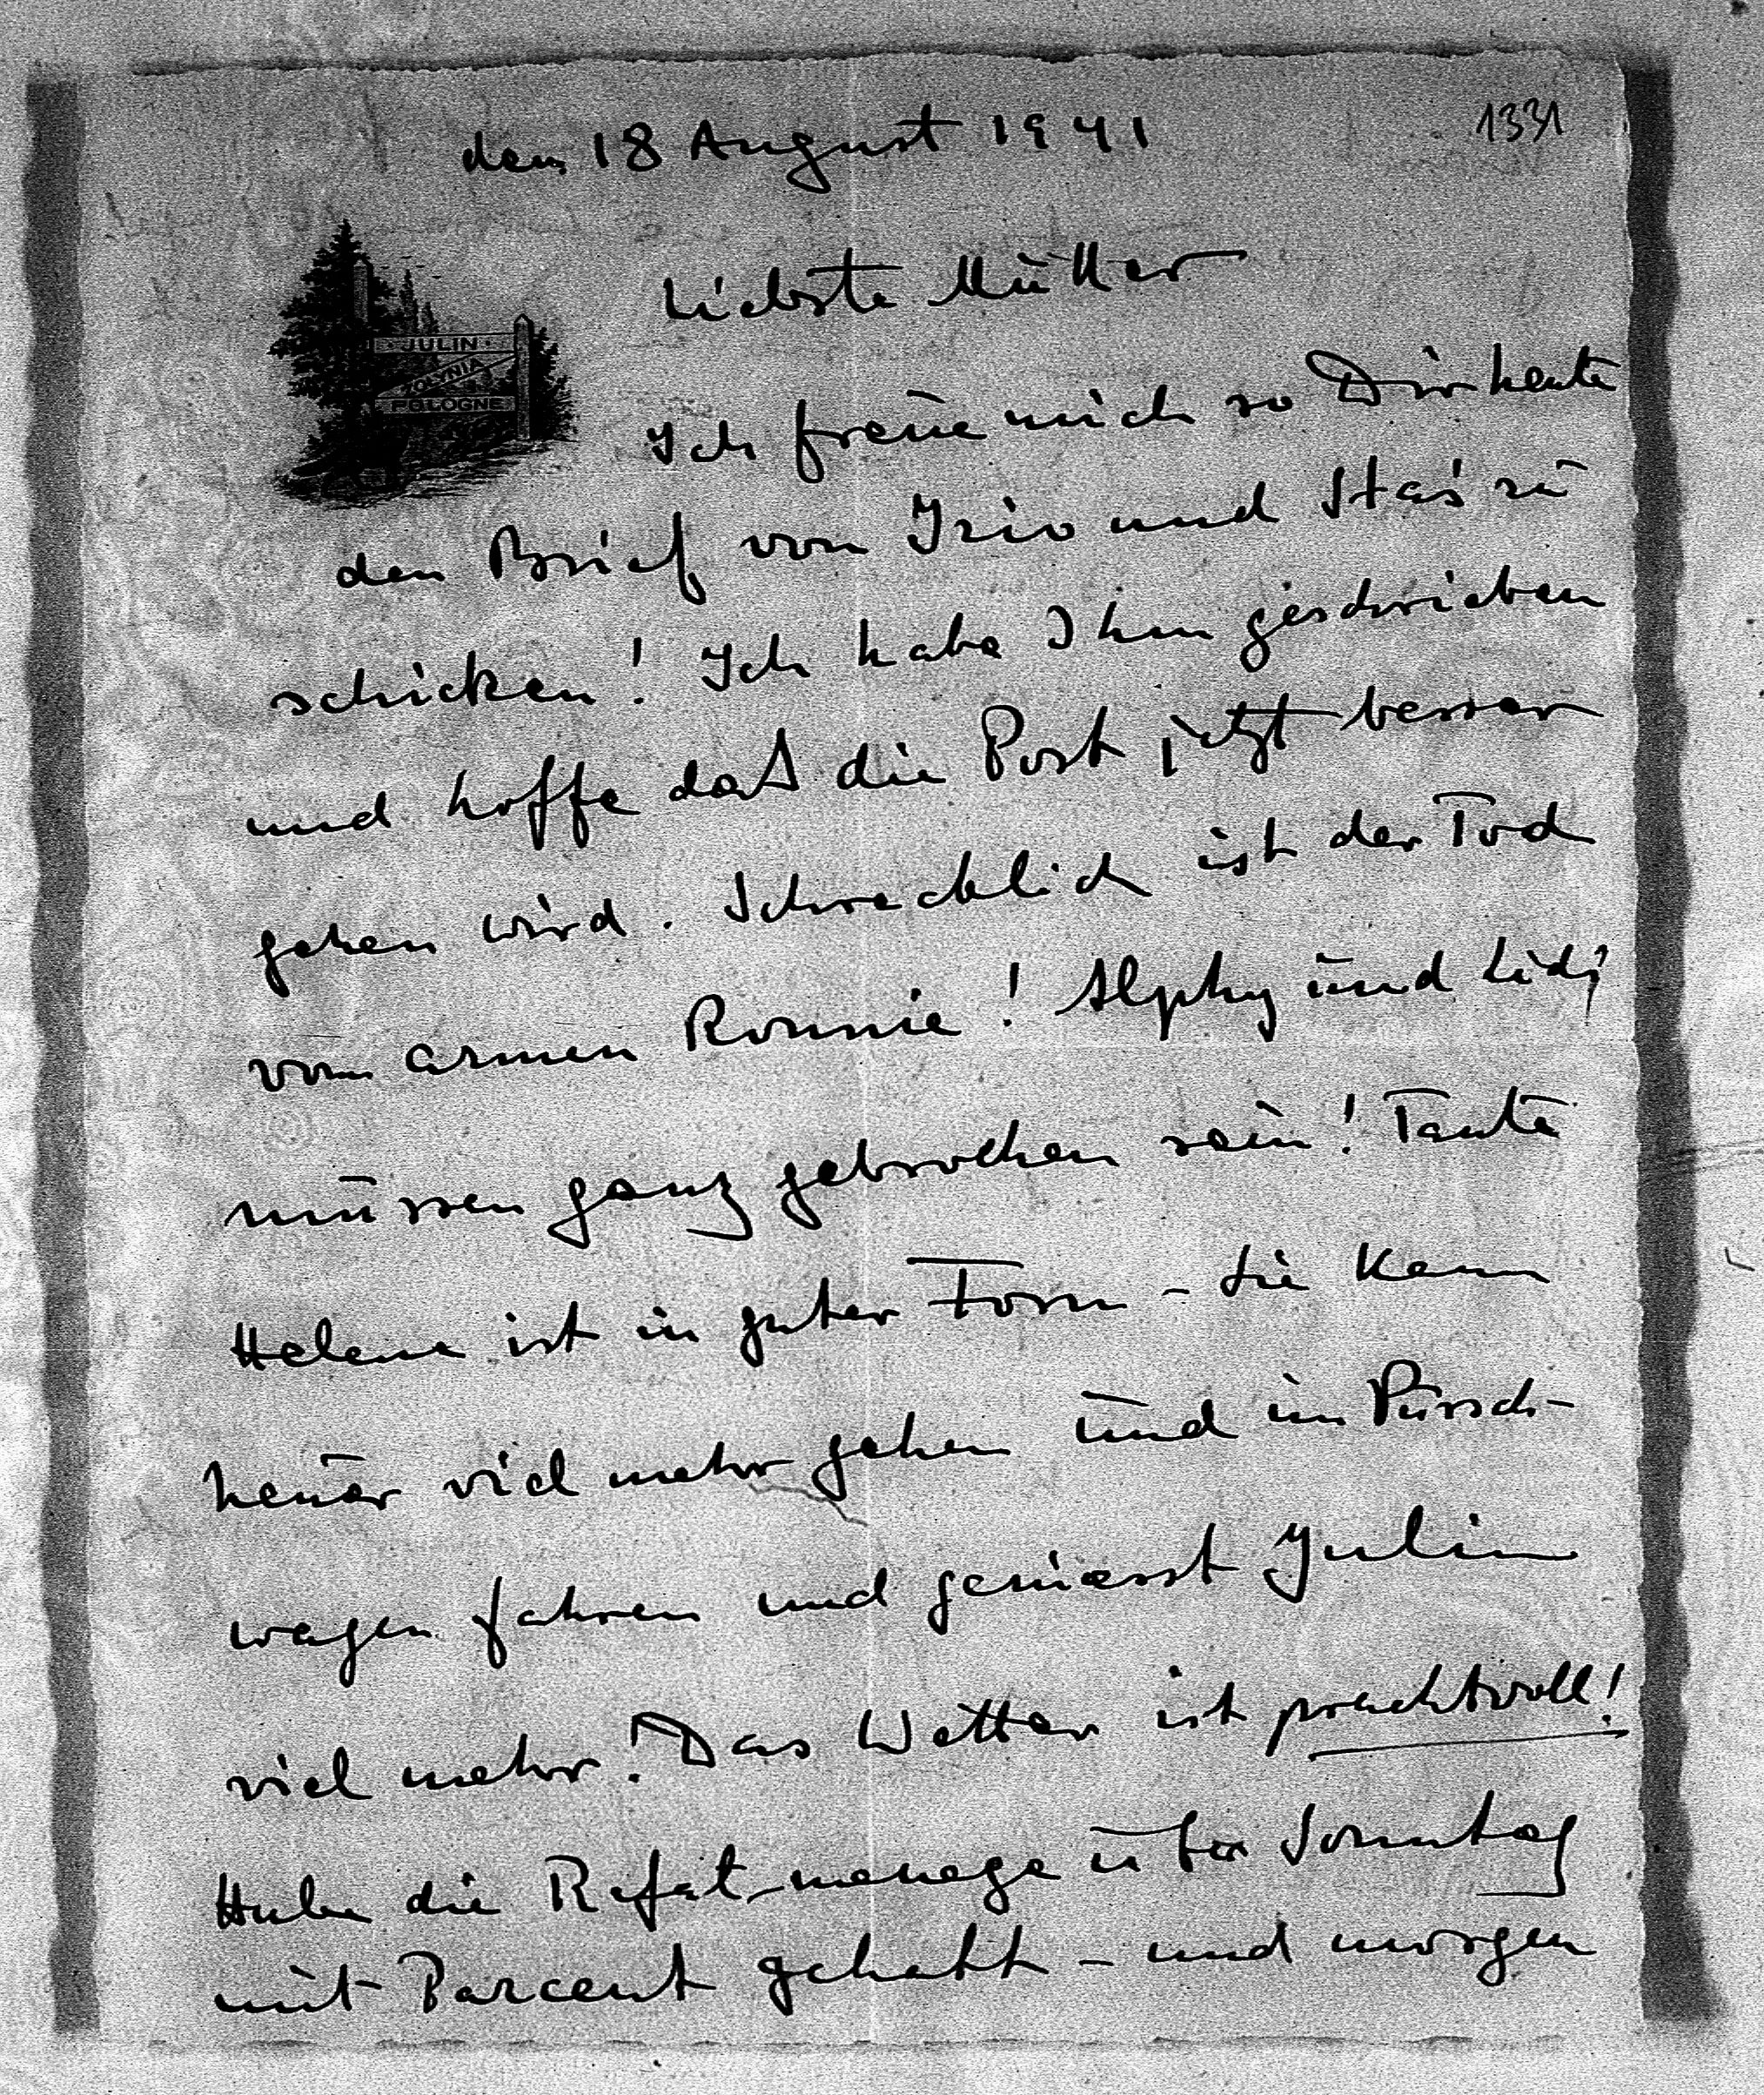 den 18 August 1941
1331
JULIN
VOLYNIA
POLOGNE
Liebste Mutter
Ich freue mich so Dir heute
den Brief von und Staś zu
schicken! Ich habe Ihm geschrieben
und hoffe daß die Post jetzt besser
gehen wird. Schrecklich ist der Tod
vom armen Ronnie! Alphy und Lidi
müssen ganz gebrochen sein! Tante
Helene ist in guter Form – Sie kann
heuer viel mehr gehen und im Pürsch-
wagen fahren und geniesst Julin
viel mehr! Das Wetter ist prachtvoll!
Habe die über Sonntag
mit Parcent gehabt – und morgen